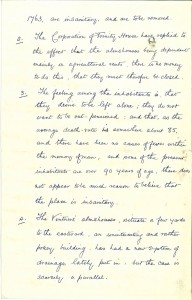 1763, are insanitary, and are to be removed.
2. The Corporation of Trinity House have replied
to the effect that the almshouses being dependent
mainly on agricultural rents, there is no money
to do this, & that they must therefore be closed.
3. The feeling among the inhabitants is, that
they desire to be left alone; they do not
want to be and that, as the
average death rate is somewhere about 85,
and there have been no cases of fever within
the memory of man, and some of the present
inhabitants are over 90 years of age, there does
not appear to be much reason to believe that
the place is insanitary.
4. The Vintners almshouses, situate a few yards
to the eastward, an uninteresting and rather
pokey building, has had a new system of
drainage lately put in - but the case is
scarcely a parallel.